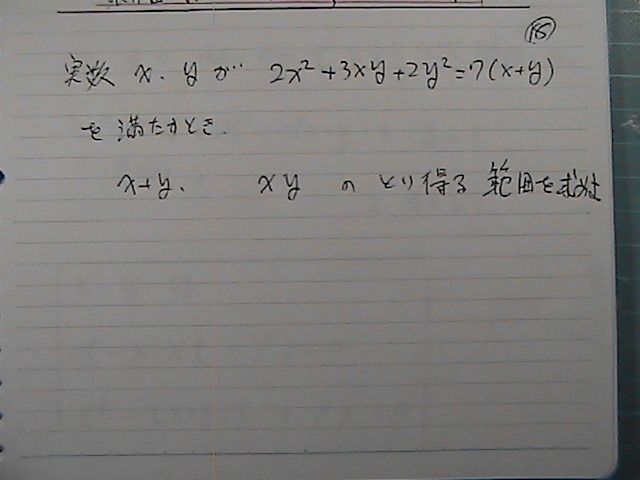 ⑮
実数 x、yが 2x²+3xy+2y²=7(x+y)
を満たすとき、
x+y、 xy のとり得る範囲を求めよ